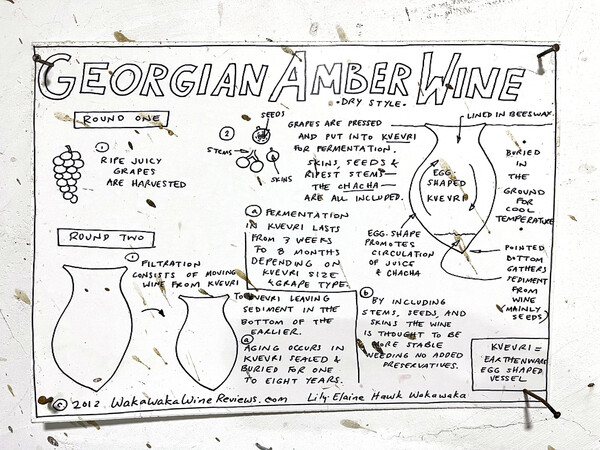 GEORGIAN AMBER WINE
• DRY STYLE •
ROUND ONE
①
RIPE JUICY
GRAPES
ARE HARVESTED
②
SEEDS
STEMS
SKINS
GRAPES ARE PRESSED
AND PUT INTO KVEVRI
FOR FERMENTATION.
SKINS, SEEDS &
RIPEST STEMS —
THE CHACHA —
ARE ALL INCLUDED.
LINED IN BEESWAX
EGG-
SHAPED
KVEVRI
• BURIED
IN
THE
GROUND
FOR
COOL
TEMPERATURE •
EGG-SHAPE
PROMOTES
CIRCULATION
OF JUICE
& CHACHA
POINTED
BOTTOM
GATHERS
SEDIMENT
FROM
WINE
(MAINLY
SEEDS)
ⓐ FERMENTATION
IN KVEVRI LASTS
FROM 3 WEEKS
TO 8 MONTHS
DEPENDING ON
KVEVRI SIZE
& GRAPE TYPE.
ⓑ
BY INCLUDING
STEMS, SEEDS, AND
SKINS THE WINE
IS THOUGHT TO BE
MORE STABLE
NEEDING NO ADDED
PRESERVATIVES.
ROUND TWO
① FILTRATION
CONSISTS OF MOVING
WINE FROM KVEVRI
TO KVEVRI LEAVING
SEDIMENT IN THE
BOTTOM OF THE
EARLIER.
ⓐ
AGING OCCURS IN
KVEVRI SEALED &
BURIED FOR ONE
TO EIGHT YEARS.
KVEVRI =
EARTHENWARE
EGG SHAPED
VESSEL
© 2012 WakaWakaWineReviews.com Lily-Elaine Hawk Wakawaka